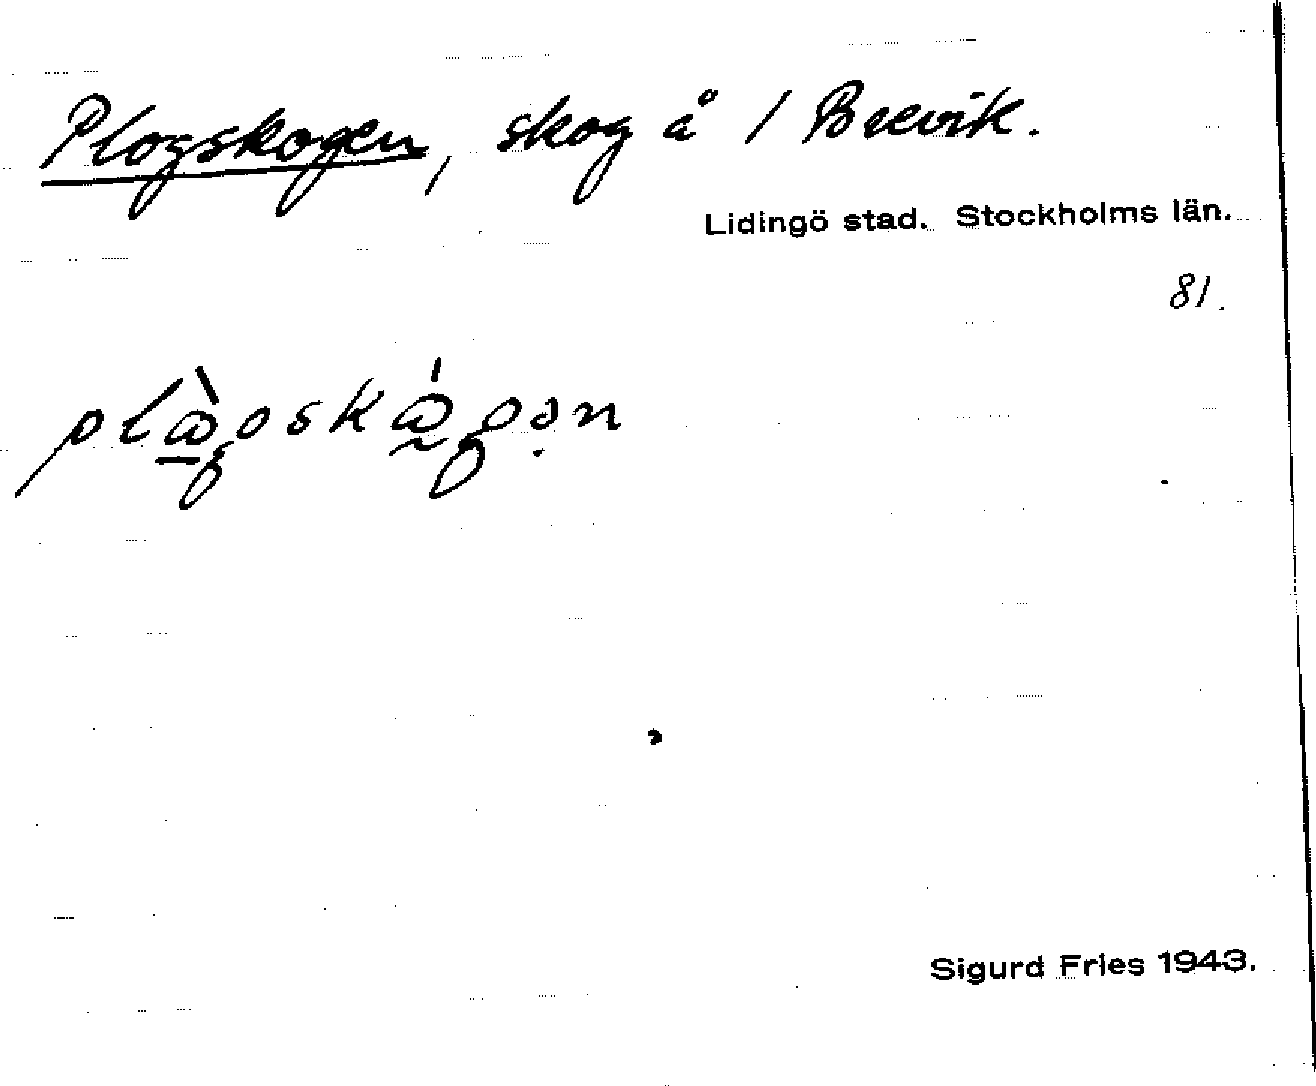 Plogskogen, skog å 1 Brevik.
Lidingö stad. Stockholms län.
81.
Sigurd Fries 1943.